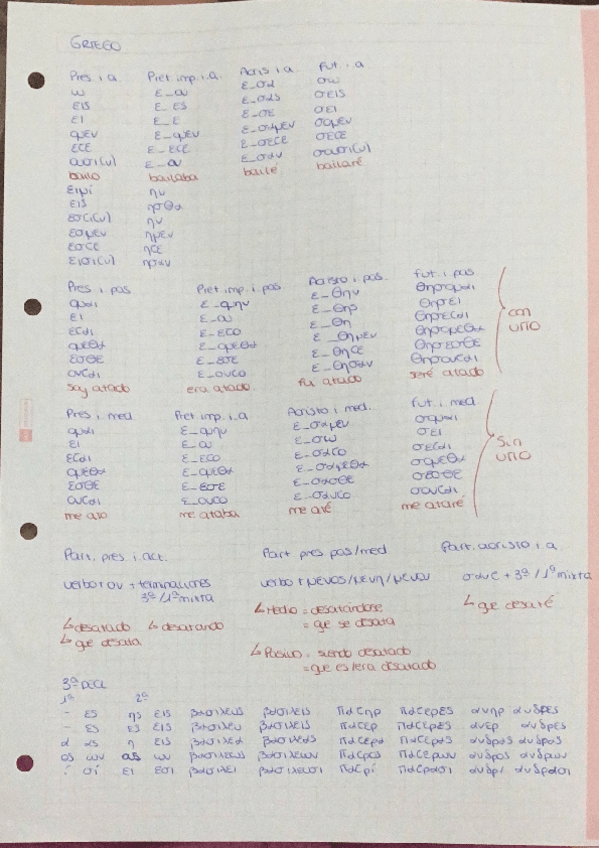 GRIEGO
Pres i.a. Pret imp. i.a. Aoris i.a. Fut. i.a
ω ε_ον ε_σα σω
εις ε_ες ε_σας σεις
ει ε_ε ε_σε σει
ομεν ε_ομεν ε_σαμεν σομεν
ετε ε_ετε ε_σατε σετε
ουσι(ν) ε_ον ε_σαν σουσι(ν)
bailo bailaba bailé bailaré
ειμί ην
εις ησθα
εστι(ν) ην
εσμεν ημεν
εστε ητε
εισι(ν) ησαν
Pres. i pas. Pret imp. i. pas Aoristo i pas. fut. i pas
ομαι ε_ομην ε_θην θησομαι
ει ε_ου ε_θης θησει
εται ε_ετο ε_θη θησεται
ομεθα ε_ομεθα ε_θημεν θησομεθα con
εσθε ε_εσθε ε_θητε θησεσθε υπο
ονται ε_οντο ε_θησαν θησονται
soy atado era atado. fui atado seré atado
Pres, i med. Pret imp. i.a Aoristo i med. fut. i. med
ομαι ε_ομην ε_σαμεν σομαι
ει ε_ου ε_σω σει
εται ε_ετο ε_σατο σεται Sin
ομεθα ε_ομεθα ε_σαμεθα σομεθα υπο
εσθε ε_εσθε ε_σασθε σεσθε
ονται ε_οντο ε_σαντο σονται
me ato me ataba me até me ataré
Part. pres i. act. Part pres pas/med Part. aoristo i a.
verbo + ον + terminaciones verbo + μενος/μενη/μενον σαντ + 3ª/1ª mixta
3ª/1ª mixta
↳ desatado ↳ desatando ↳ Medio = desatándose ↳ que desaté
↳ que desata = que se desata
↳ Pasivo = siendo desatado
= que es/era desatado
3ª dec
1ª 2ª
- ες ης εις βασιλευς βασιλεις πατηρ πατερες ανηρ ανδρες
- ες ες εις βασιλευ βασιλεις πατερ πατερες ανερ ανδρες
α ας η εις βασιλεα βασιλεας πατερα πατερας ανδρας ανδρας
ος ων ους ων βασιλεως βασιλεων πατρος πατερων ανδρος ανδρων
ι σι ει εσι βασιλει βασιλευσι πατρί πατρασι ανδρι ανδρασι